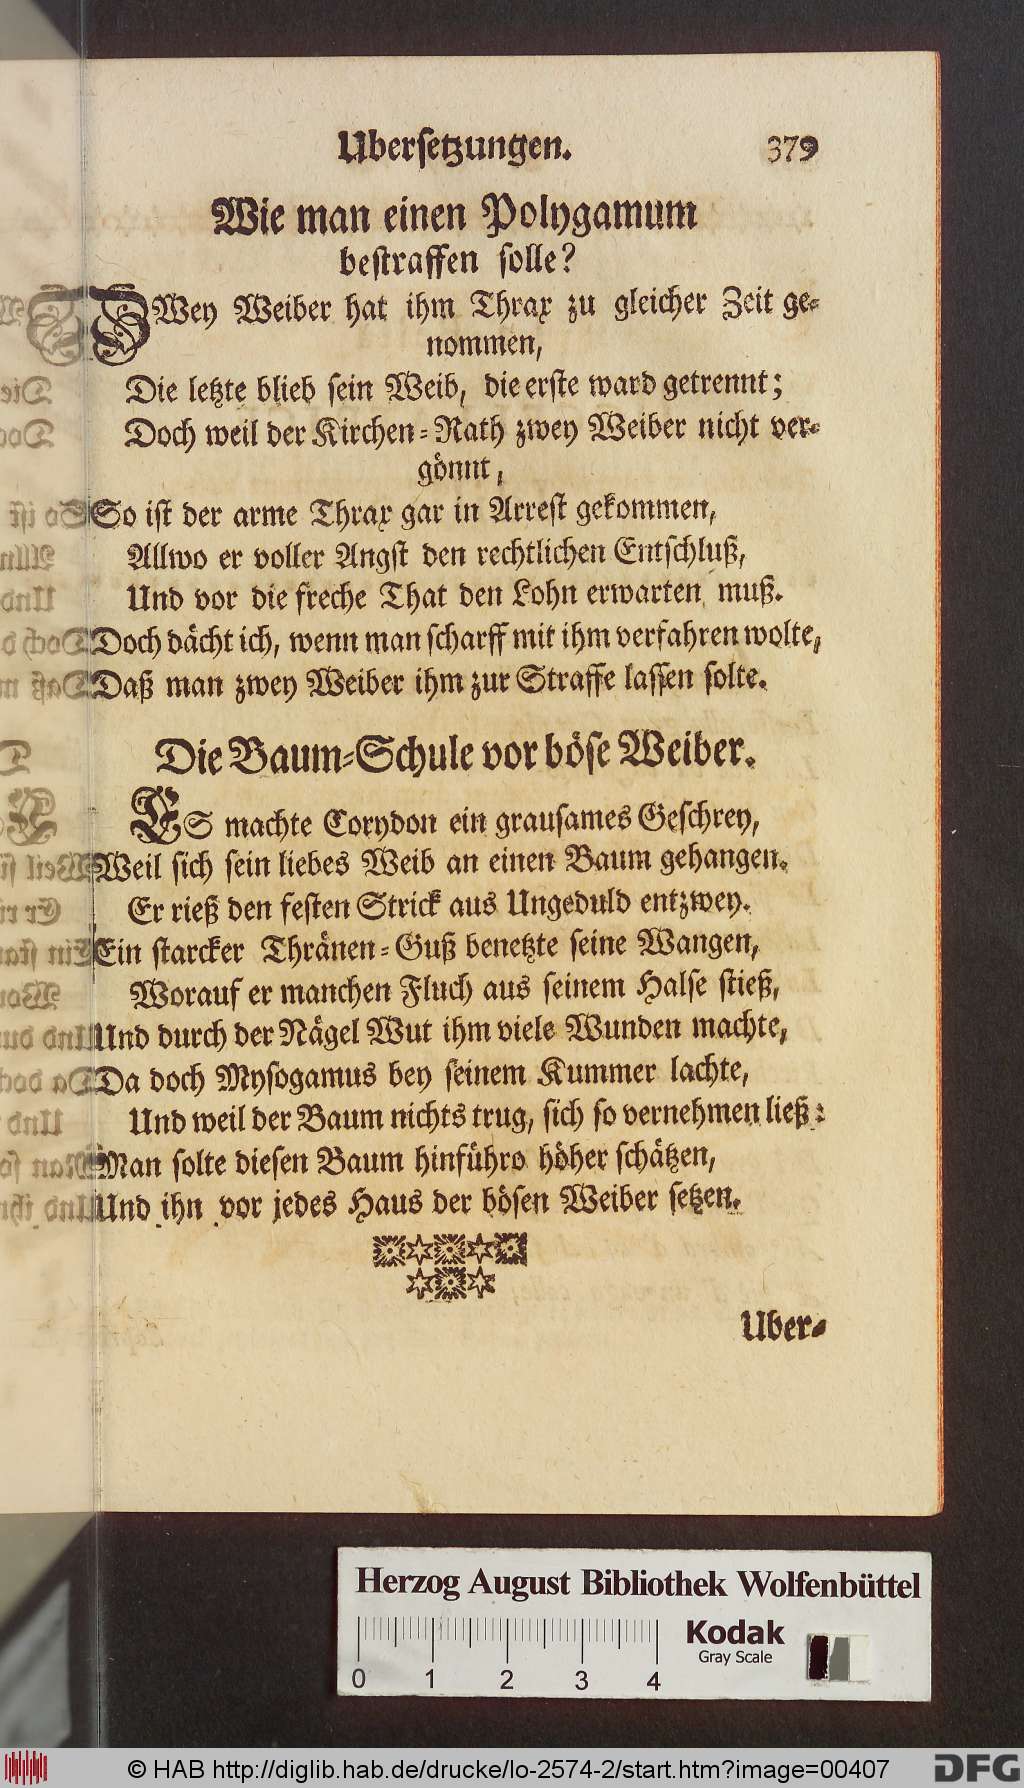 Ubersetzungen. 379
Wie man einen Polygamum
bestraffen solle?
ZWey Weiber hat ihm Thrax zu gleicher Zeit ge-
nommen,
Die letzte blieb sein Weib, die erste ward getrennt;
Doch weil der Kirchen-Rath zwey Weiber nicht ver-
gönnt,
So ist der arme Thrax gar in Arrest gekommen,
Allwo er voller Angst den rechtlichen Entschluß,
Und vor die freche That den Lohn erwarten muß.
Doch dächt ich, wenn man scharff mit ihm verfahren wolte,
Daß man zwey Weiber ihm zur Straffe lassen solte.
Die Baum-Schule vor böse Weiber.
ES machte Corydon ein grausames Geschrey,
Weil sich sein liebes Weib an einen Baum gehangen.
Er rieß den festen Strick aus Ungeduld entzwey.
Ein starcker Thränen-Guß benetzte seine Wangen,
Worauf er manchen Fluch aus seinem Halse stieß,
Und durch der Nägel Wut ihm viele Wunden machte,
Da doch Mysogamus bey seinem Kummer lachte,
Und weil der Baum nichts trug, sich so vernehmen ließ:
Man solte diesen Baum hinführo höher schätzen,
Und ihn vor jedes Haus der bösen Weiber setzen.
Uber-
Herzog August Bibliothek Wolfenbüttel
Kodak
Gray Scale
0 1 2 3 4
© HAB http://diglib.hab.de/drucke/lo-2574-2/start.htm?image=00407
DFG